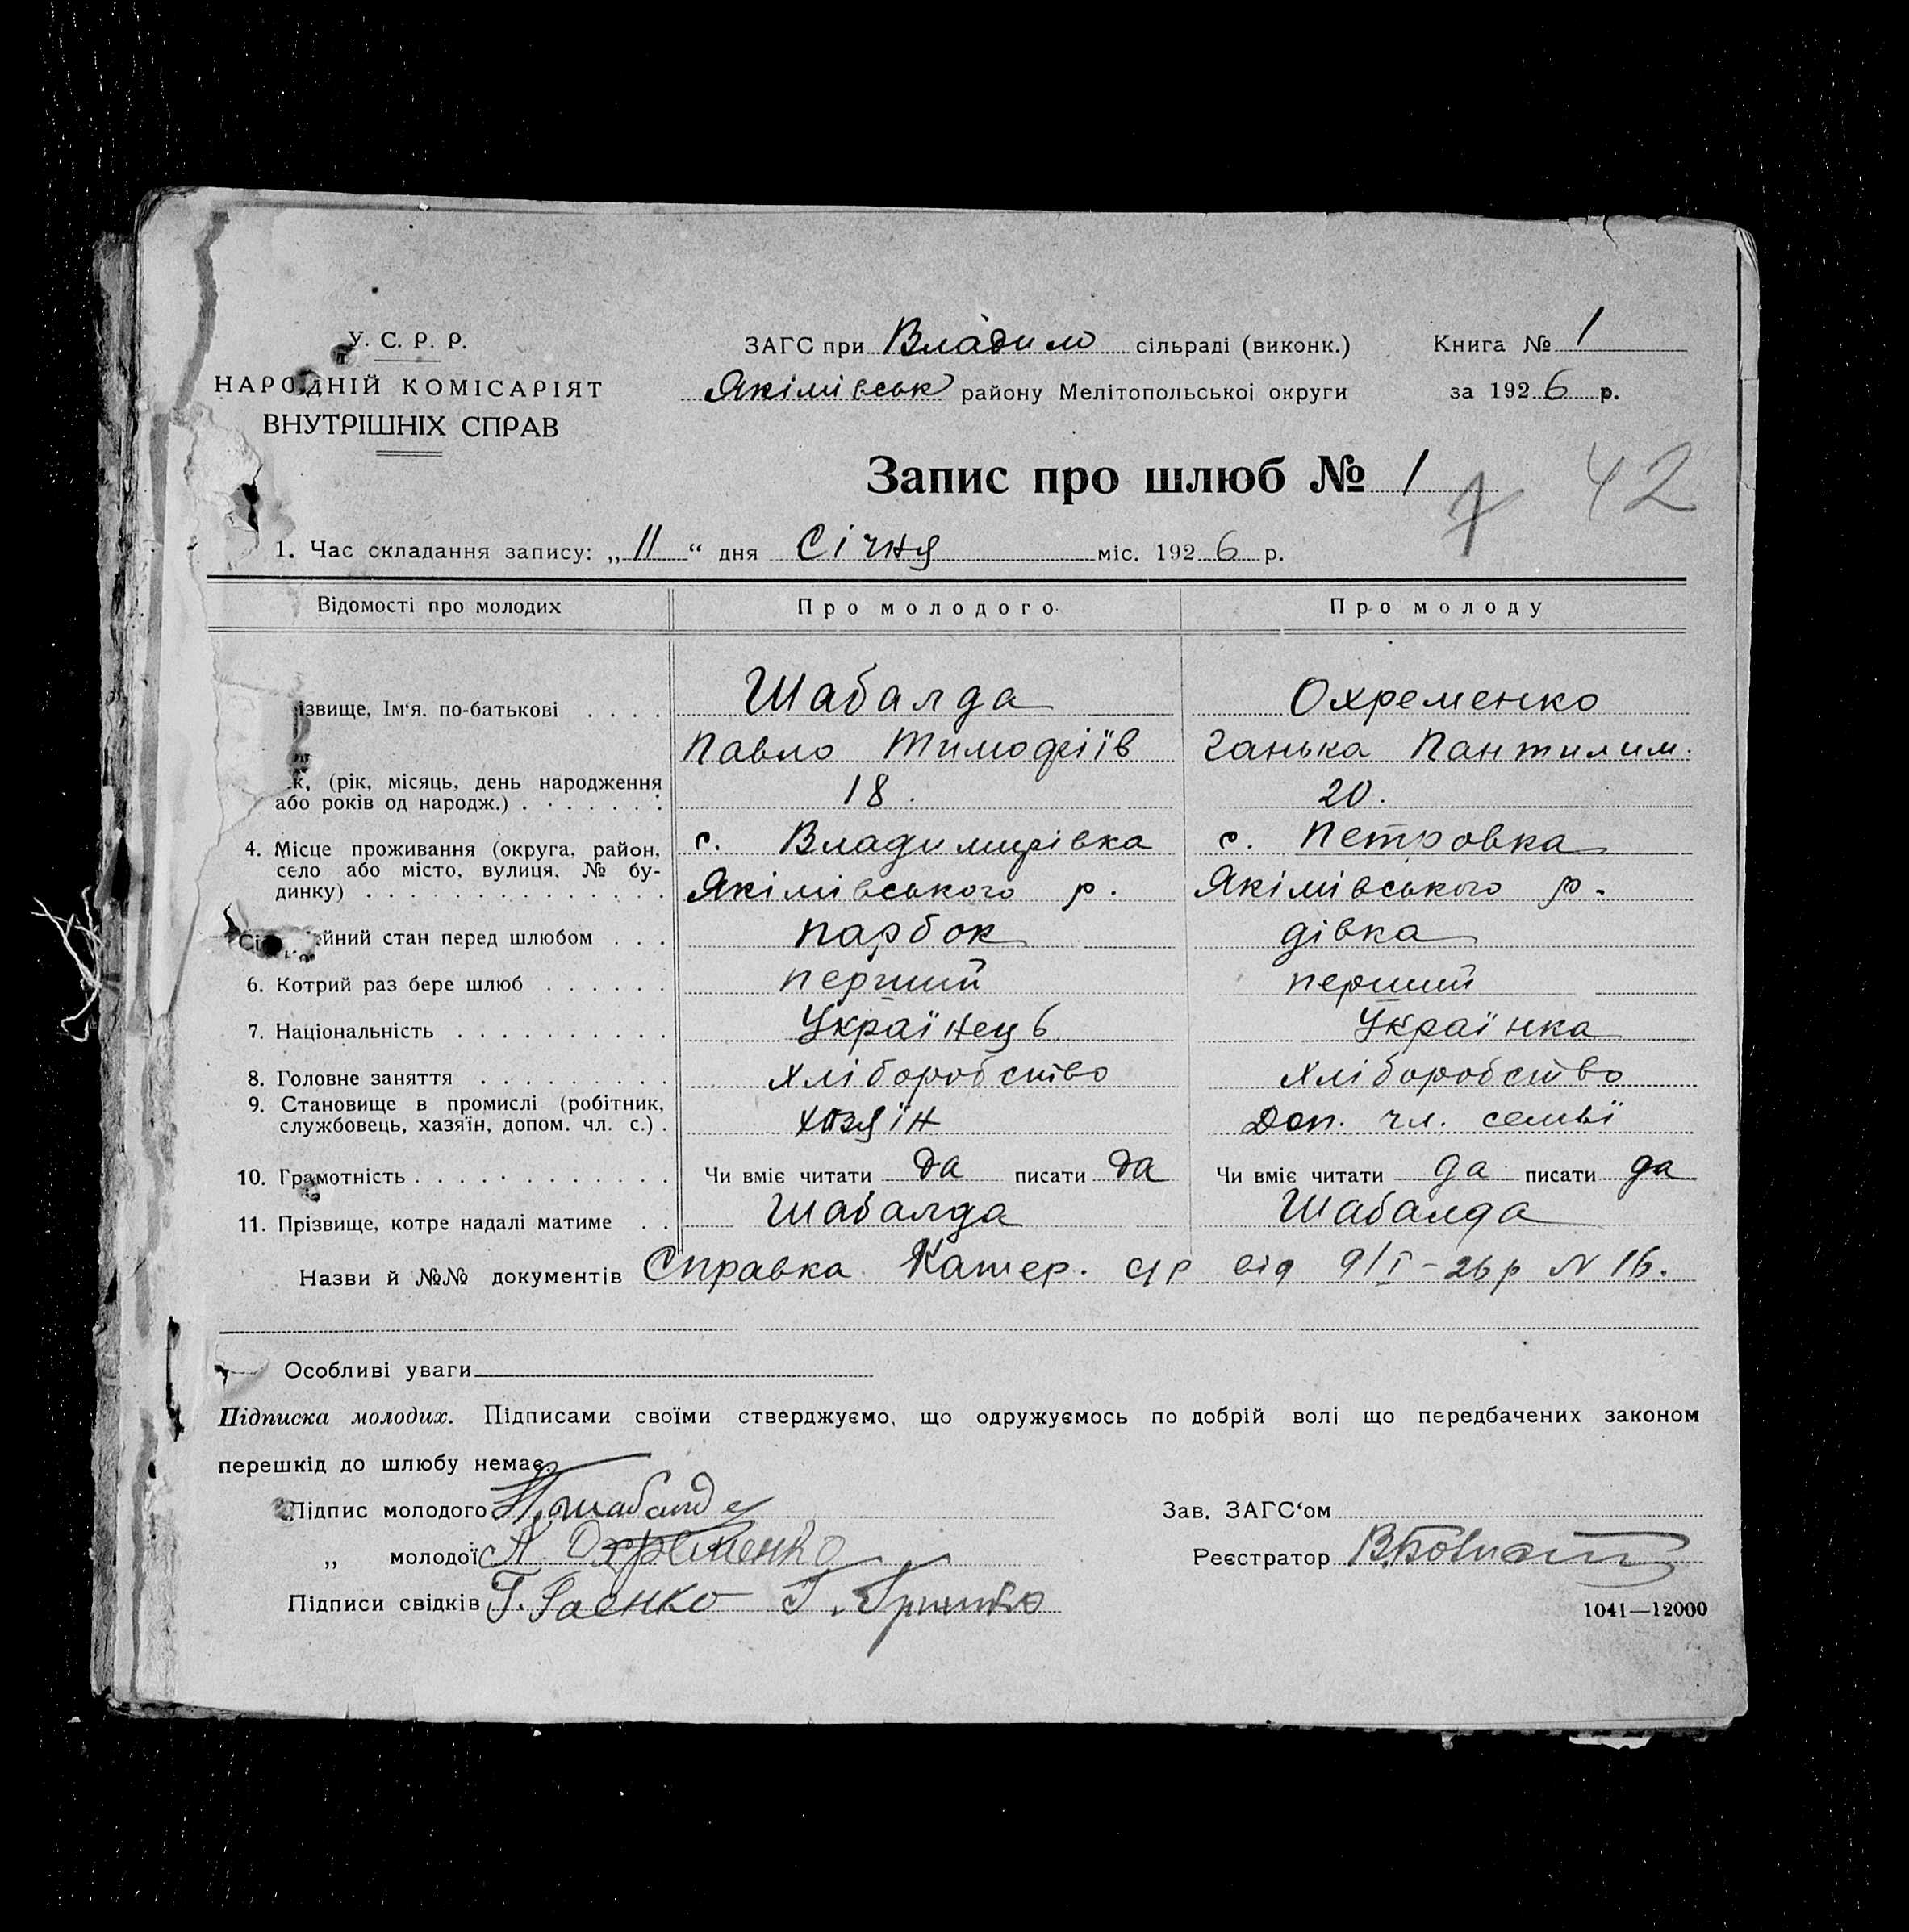 У. С. Р. Р.
НАРОДНІЙ КОМІСАРІЯТ
ВНУТРІШНІХ СПРАВ
ЗАГС при Владимо сільраді (виконк.)
Якімівськ району Мелітопольскої округи
Книга № 1
за 1926 р.
Запис про шлюб № 1
42
1. Час складання запису: „11“ дня Січня міс. 1926 р.
Відомості про молодих Про молодого Про молоду
ізвище, Ім‘я. по-батькові . . . . Шабалда Охременко
Павло Тимофіїв Ганька Пантилим.
к, (рік, місяць, день народження
або років од народж.) . . . . . . . 18. 20.
4. Місце проживання (округа, район, с. Владимирівка с. Петровка
село або місто, вулиця, № бу-
динку) . . . . . . . . . . . . . . Якімівського р. Якімівського р.
ейний стан перед шлюбом . . . парбок дівка
6. Котрий раз бере шлюб . . . . . . перший перший
7. Національність . . . . . . . . . . Українець Українка
8. Головне заняття . . . . . . . . . хліборобство хліборобство
9. Становище в промислі (робітник,
службовець, хазяїн, допом. чл. с.) . хозяїн Доп. чл. семьї
10. Грамотність . . . . . . . . . . . . Чи вміє читати да писати да Чи вміє читати да писати да
11. Прізвище, котре надалі матиме . . Шабалда Шабалда
Назви й №№ документів Справка Катер. с/р від 9/I-26р N 16.
Особливі уваги
Підписка молодих. Підписами своїми стверджуємо, що одружуємось по добрій волі що передбачених законом
перешкід до шлюбу немає.
Підпис молодого П. Шабалда Зав. ЗАГС‘ом
„ молодої Охременко Реєстратор
Підписи свідків Г. Гаенко Г.
1041—12000